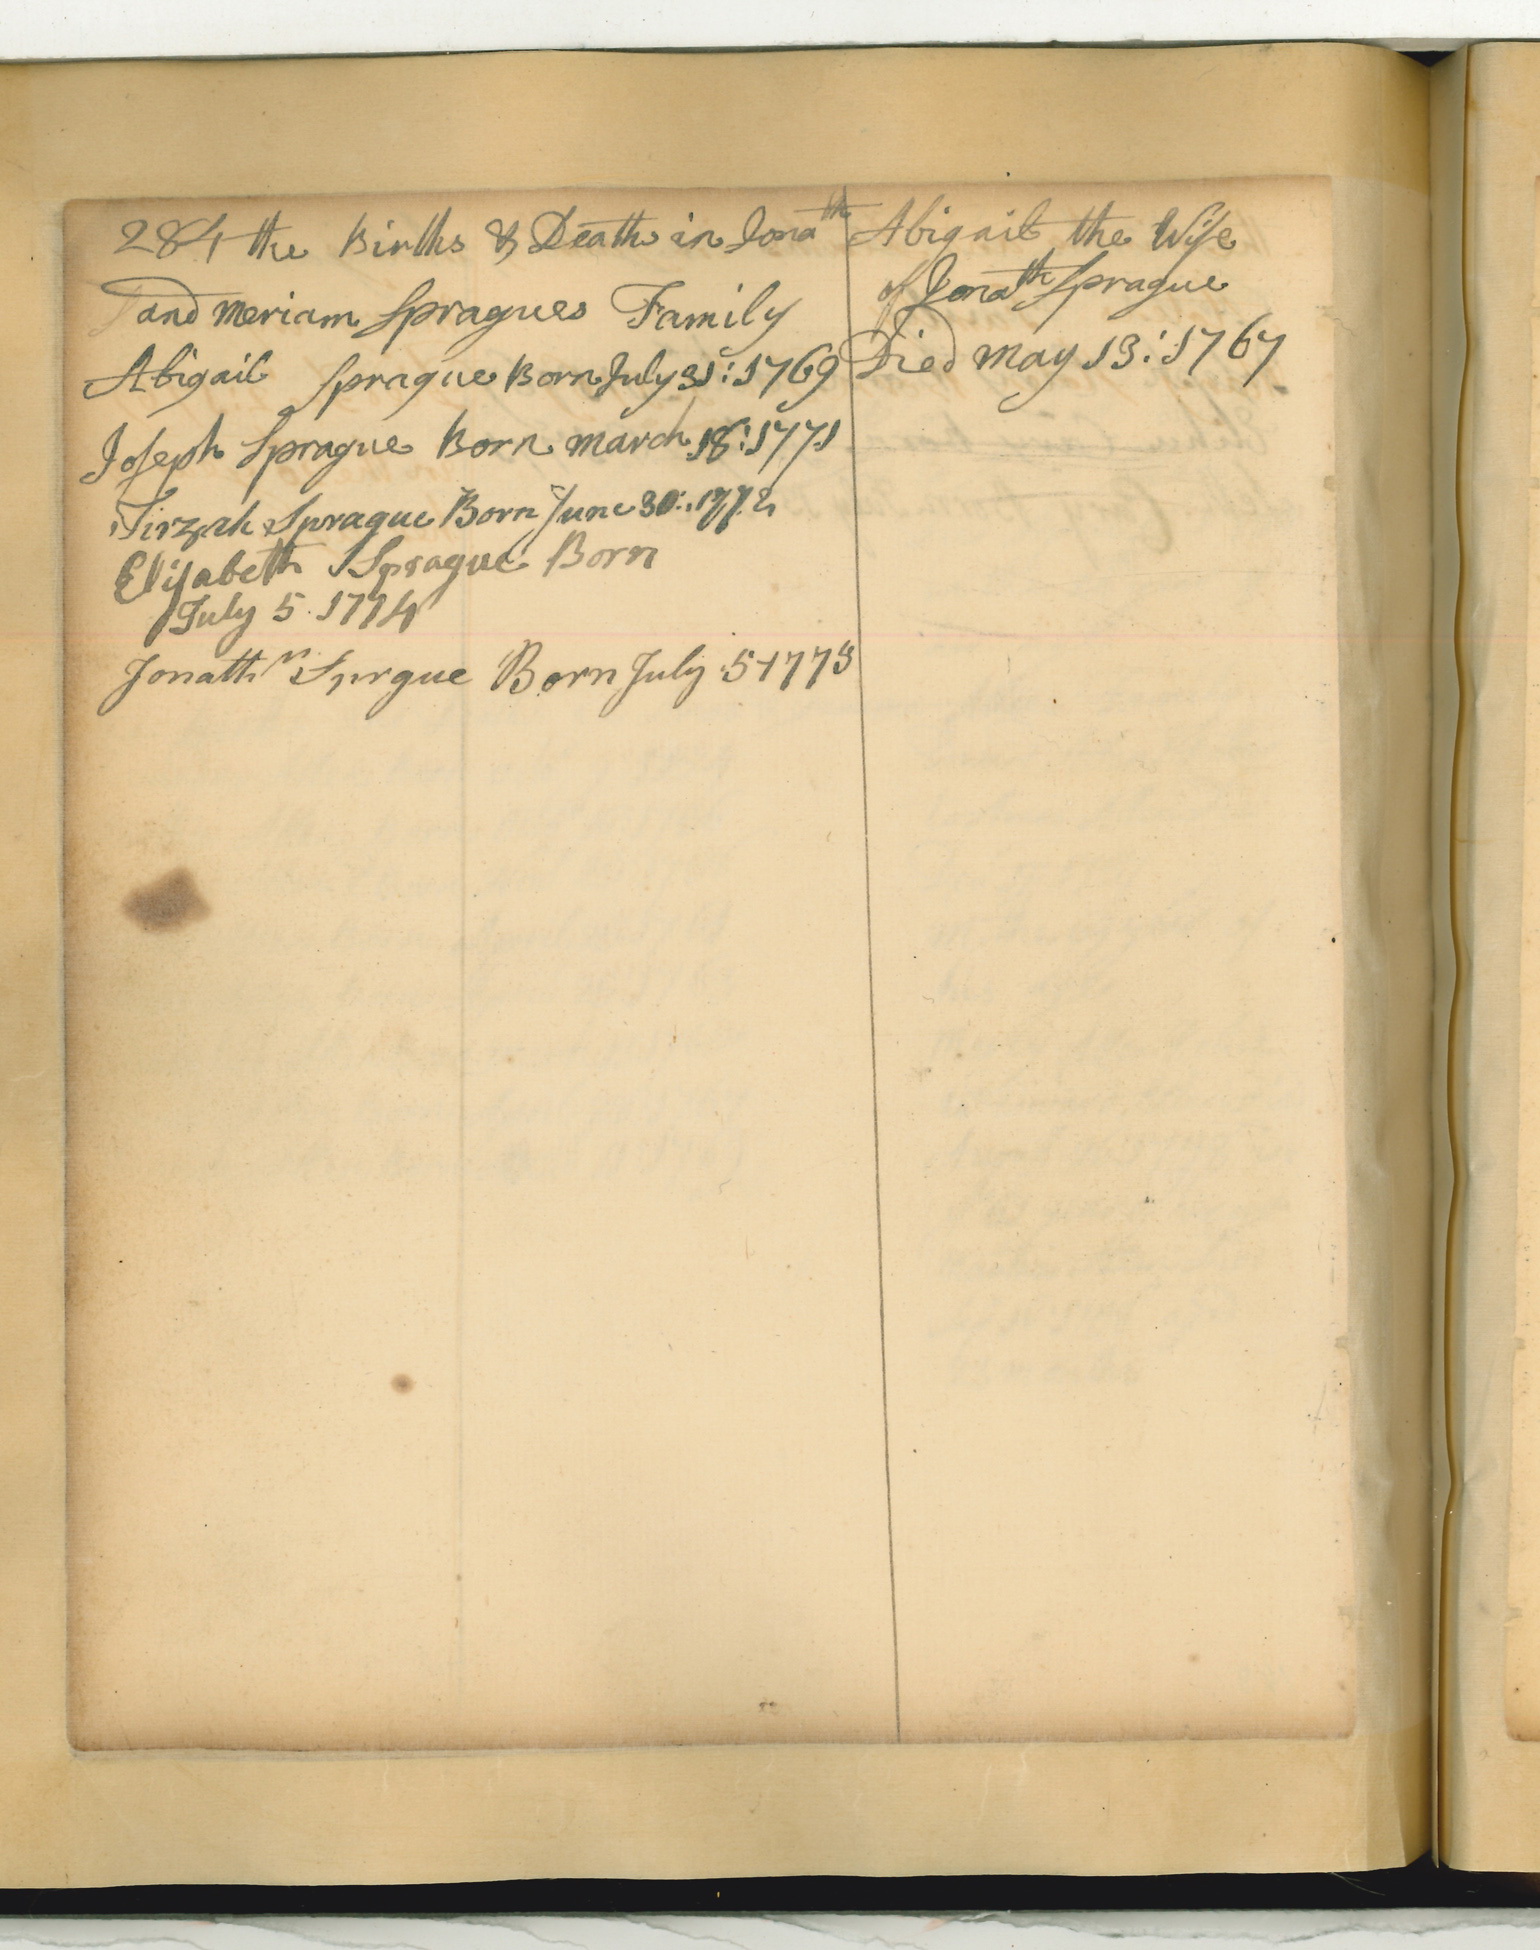 284 the Births & Death in Jonath
and Meriam Spragues Family
Abigail Sprague Born July 31: 1769
Joseph Sprague Born march 18: 1771
Tirzah Sprague Born June 30: 1772
Elisabeth Sprague Born
July 5 1774
Jonathn Sprgue Born July 5 1775
Abigail the Wife
of Jonath Sprague
Died May 13: 1767